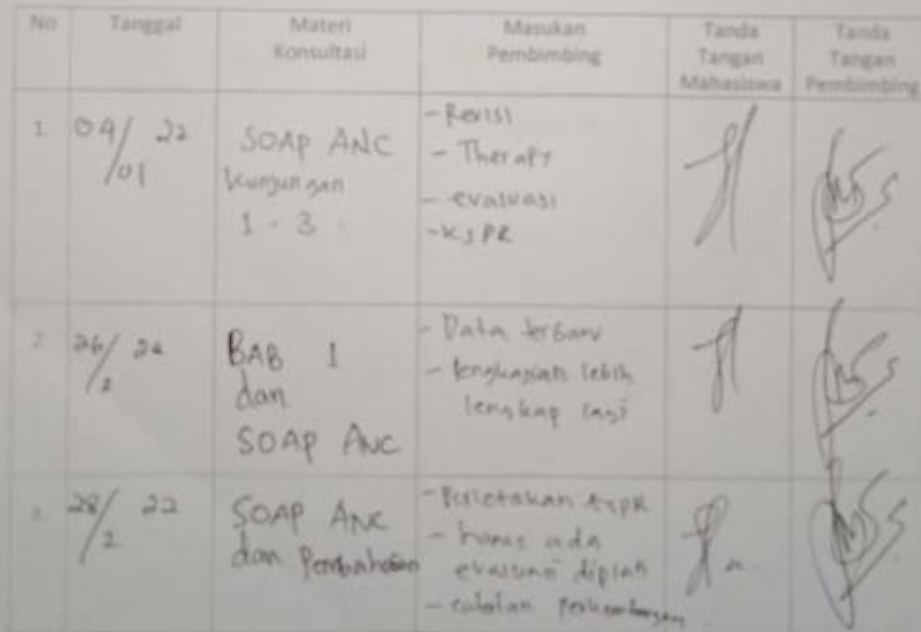 No Tanggal Materi Konsultasi Masukan Pembimbing Tanda Tangan Mahasiswa Tanda Tangan Pembimbing
1. 04/01 22
SOAP ANC
Kunjungan
1 - 3
- Revisi
- Therapy
- evaluasi
- KSPR
2 26/2 22
BAB 1
dan
SOAP ANC
- Data terbaru
- lengkapiah lebih
lengkap lagi
3 28/2 22
SOAP ANC
dan Pembahasan
- Perletakan
- harus ada
evaluasi diplan
- catatan Perkembangan